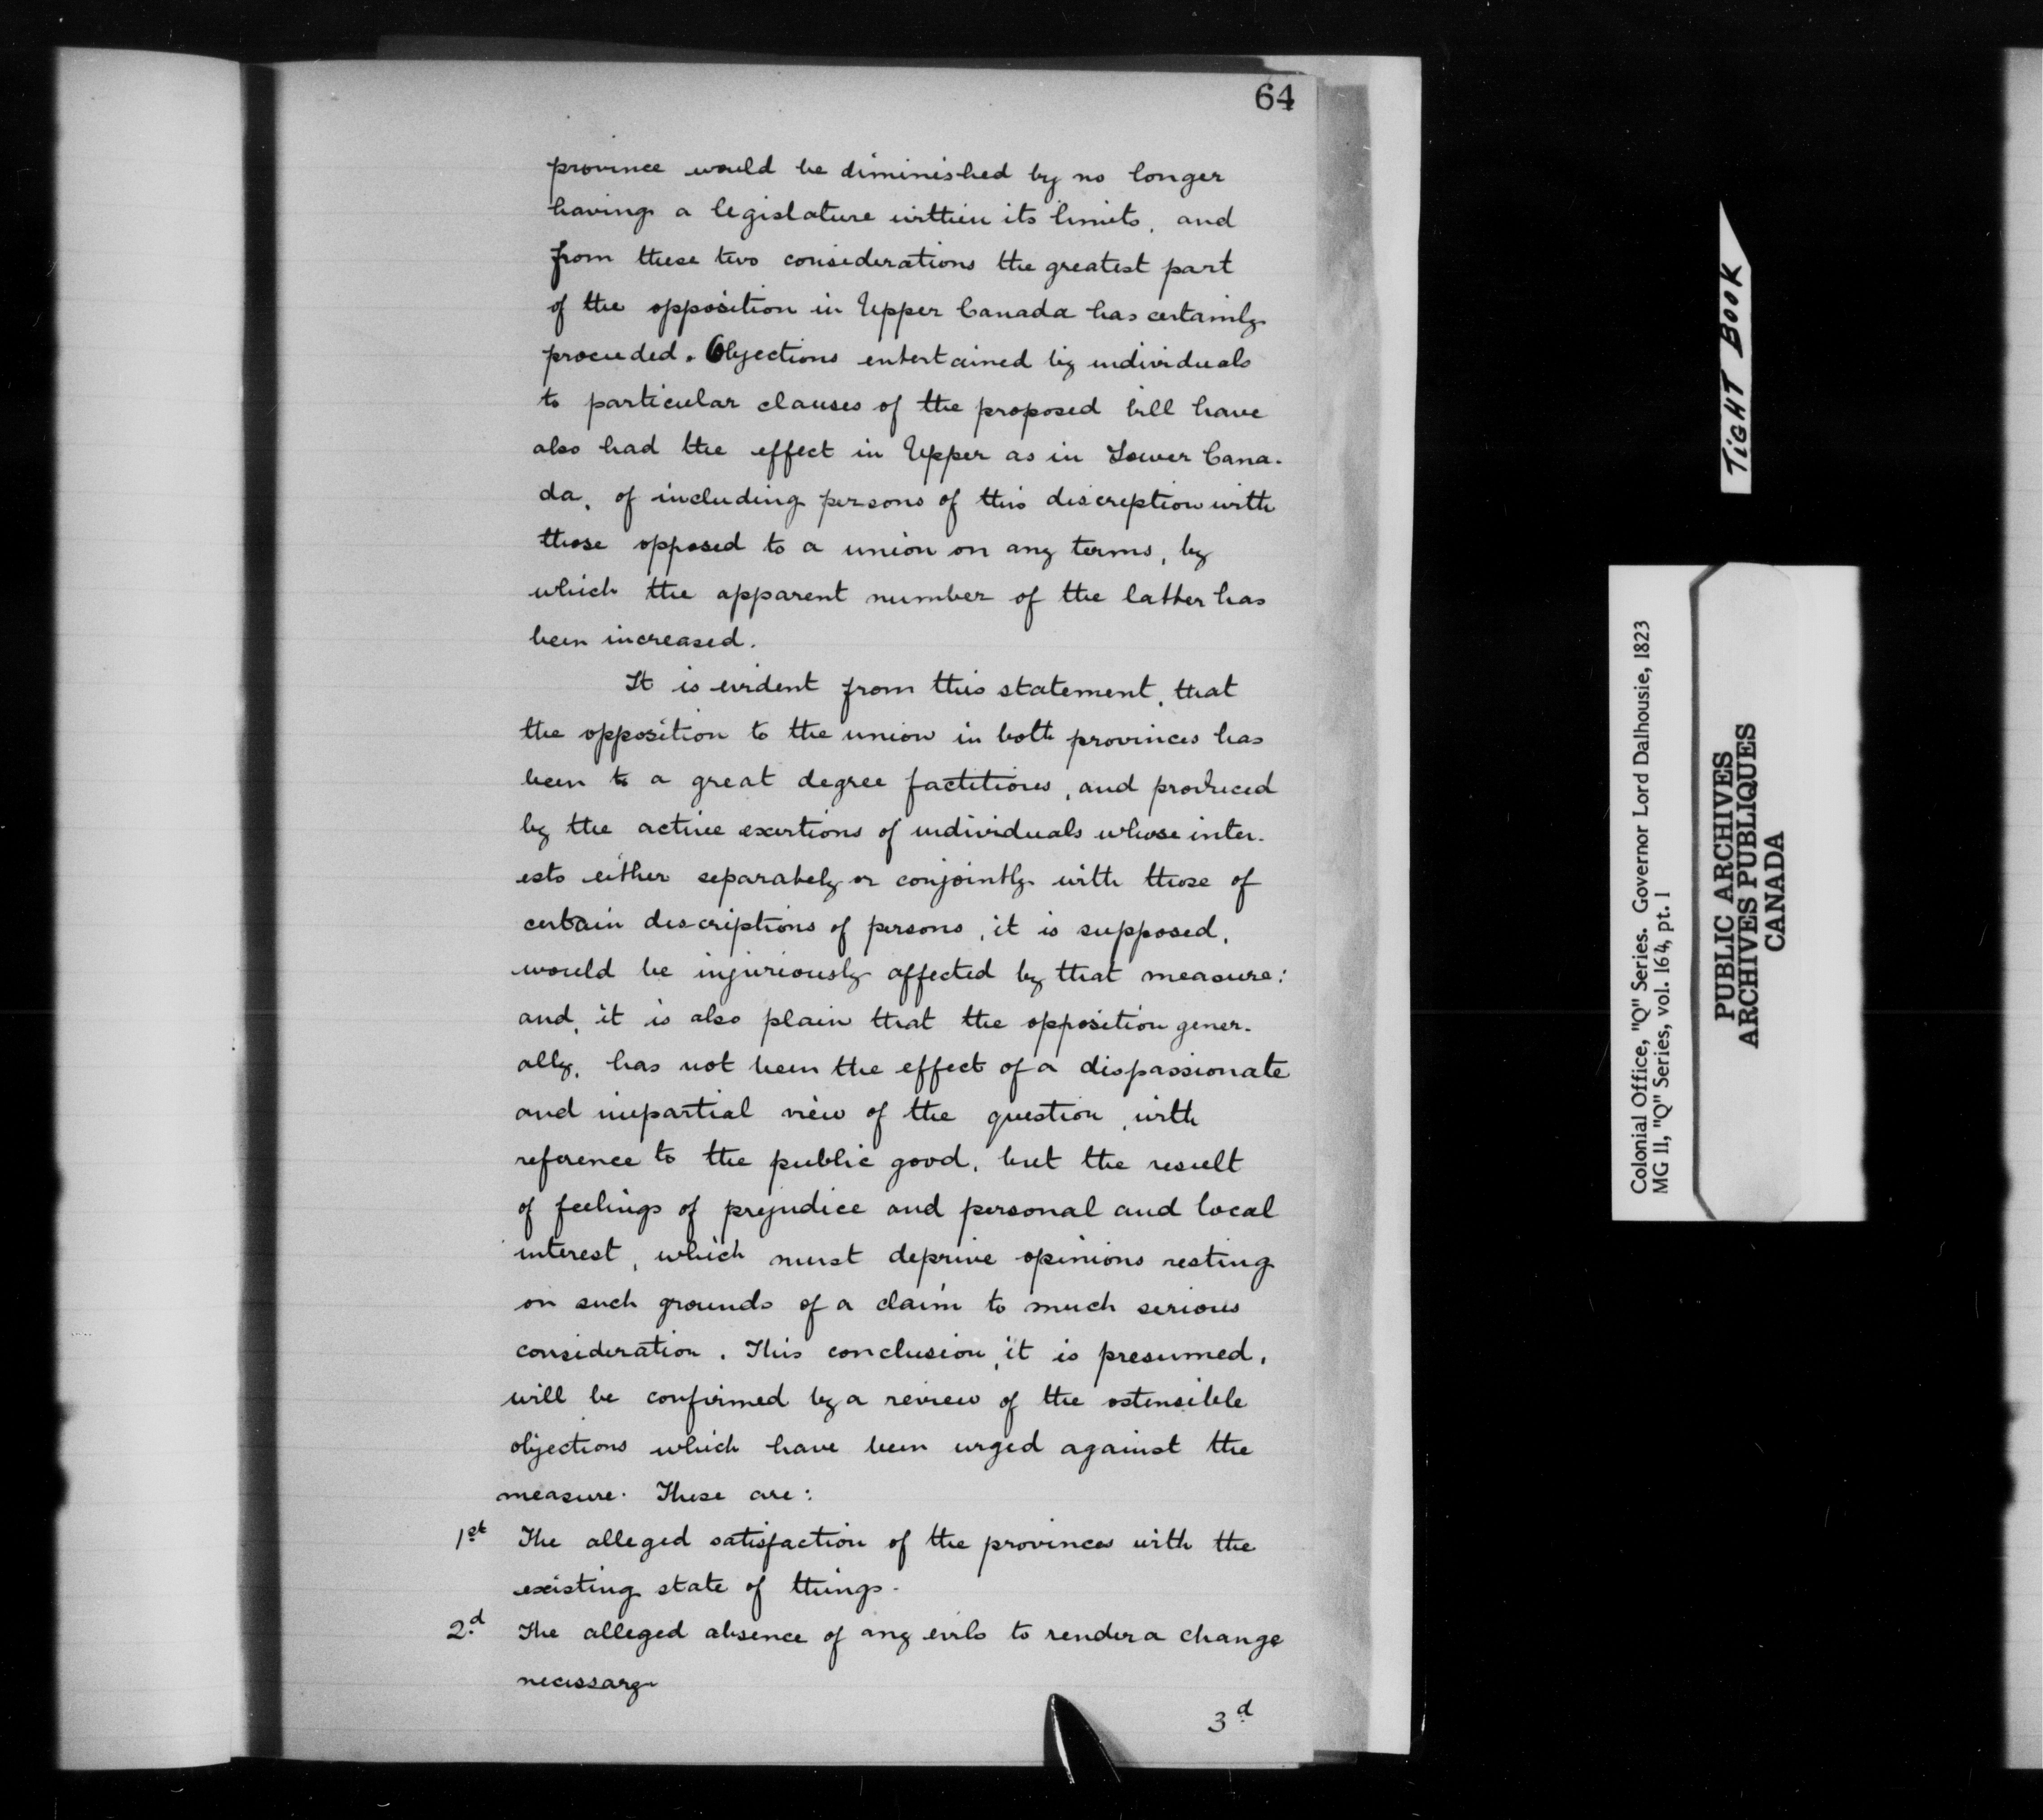 64
province would be diminished by no longer
having a legislature within its limits, and
from these two considerations the greatest part
of the opposition in Upper Canada has certainly
proceeded. Objections entertained by individuals
to particular clauses of the proposed bill have
also had the effect in Upper as in Lower Cana-
da, of including persons of this description with
those opposed to a union on any terms, by
which the apparent number of the latter has
been increased.
It is evident from this statement, that
the opposition to the union in both provinces has
been to a great degree factitious, and produced
by the active exertions of individuals whose inter-
ests either separately or conjointly with those of
certain descriptions of persons, it is supposed,
would be injuriously affected by that measure:
and, it is also plain that the opposition gener-
ally, has not been the effect of a dispassionate
and impartial view of the question, with
reference to the public good, but the result
of feelings of prejudice and personal and local
interest, which must deprive opinions resting
on such grounds of a claim to much serious
consideration. This conclusion, it is presumed,
will be confirmed by a review of the ostensible
objections which have been urged against the
measure. These are:
1st The alleged satisfaction of the provinces with the
existing state of things.
2d The alleged absence of any evils to render a change
necessary
3d
TIGHT BOOK
Colonial Office, "Q" Series. Governor Lord Dalhousie, 1823
MG 11, "Q" Series, vol. 164, pt. 1
PUBLIC ARCHIVES
ARCHIVES PUBLIQUES
CANADA